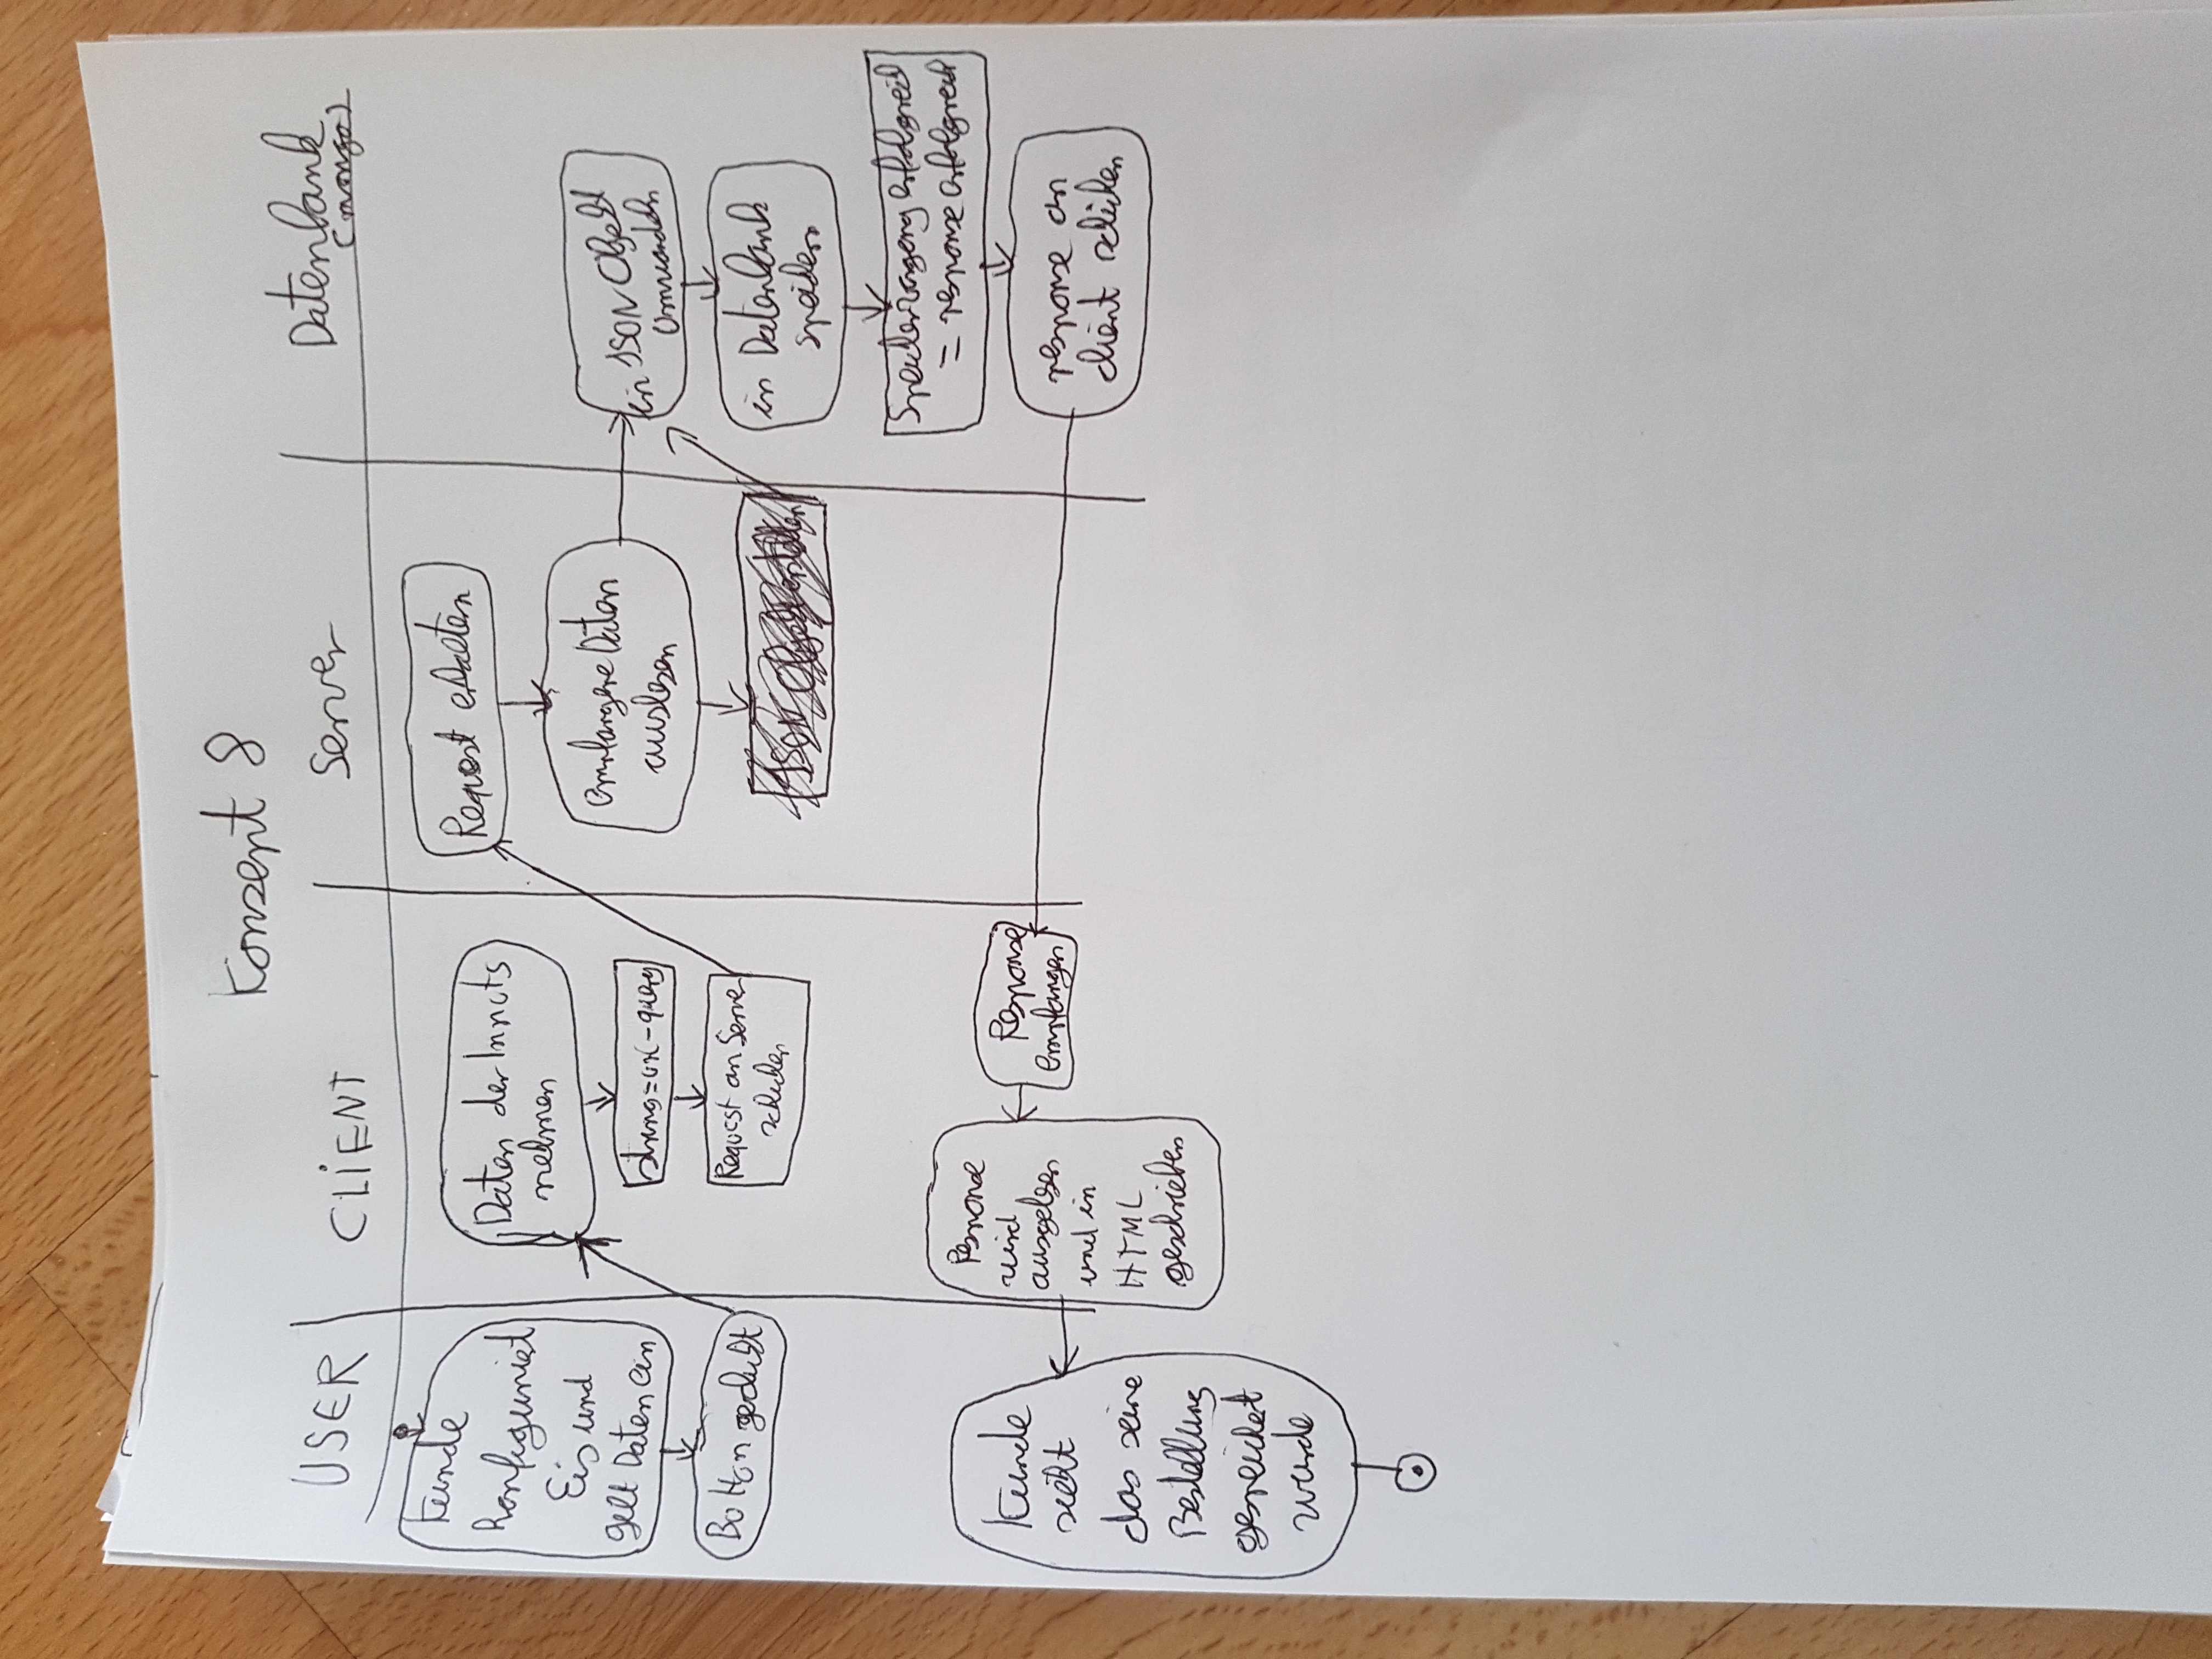 Konzept 8
USER
CLIENT
Server
Datenbank
(mongo)
Kunde
konfiguriert
Eis und
gibt Daten ein
Button gedrückt
Daten der Inputs
nehmen
string=url-query
Request an Server
schicken
Request erhalten
empfangene Daten
auslesen
JSON Objekt erstellen
in JSON Objekt
umwandeln
in Datenbank
speichern
Speichervorgang erfolgreich
= response erfolgreich
response an
client schicken
Response
empfangen
Response
wird
ausgelesen
und in
HTML
geschrieben
Kunde
sieht
das seine
Bestellung
gespeichert
wurde